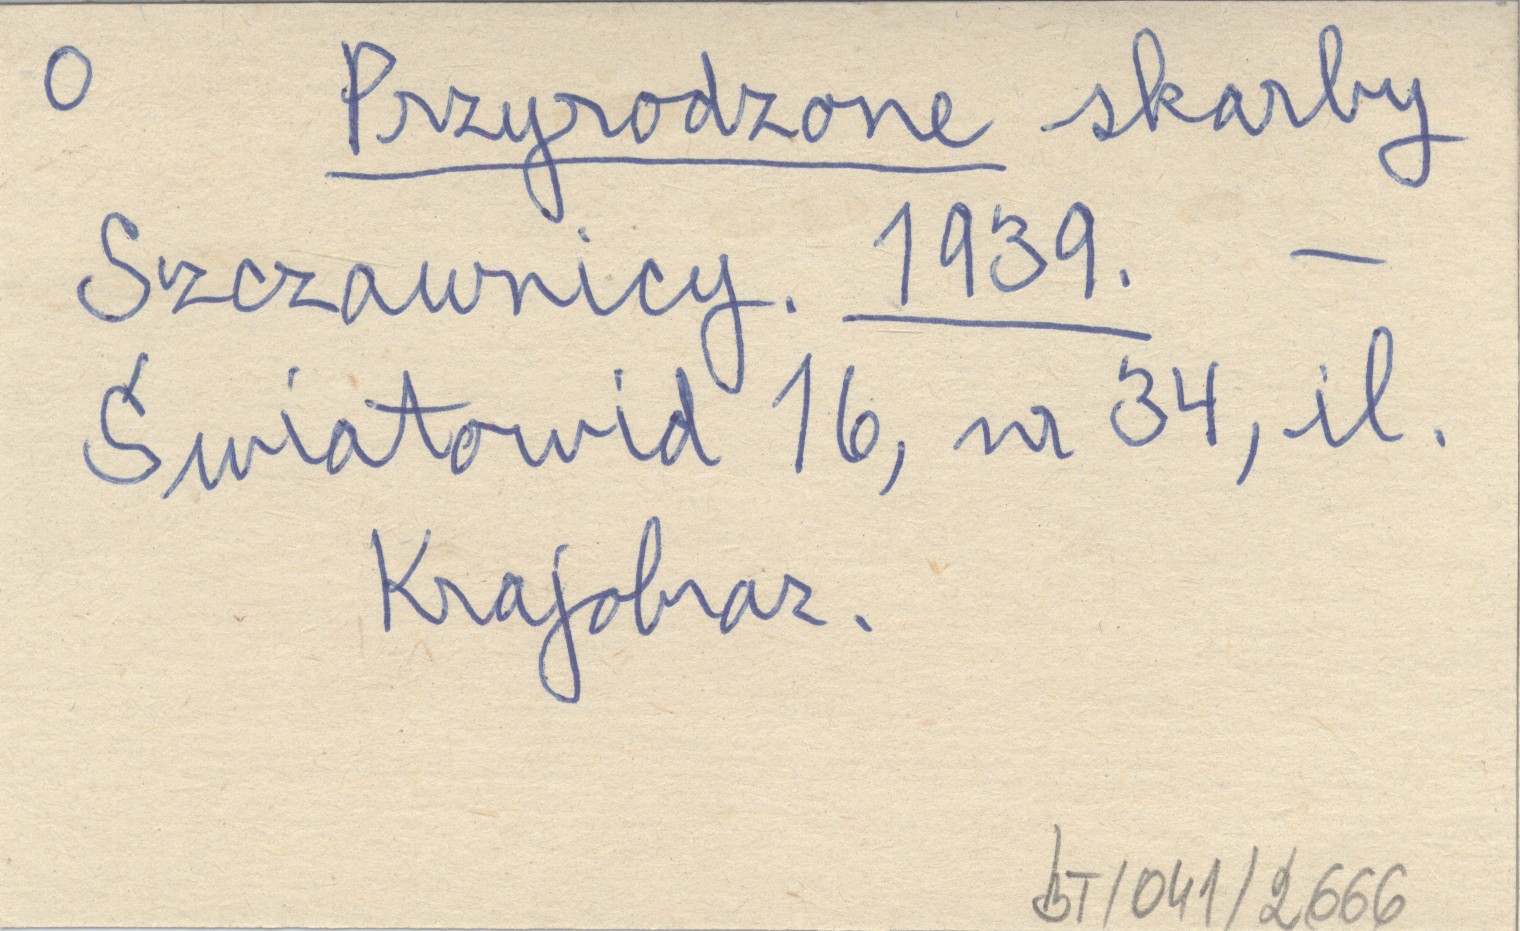 O Przyrodzone skarby
Szczawnicy. 1939. —
Światowid 16, nr 34, il.
Krajobraz.
BT/041/2666